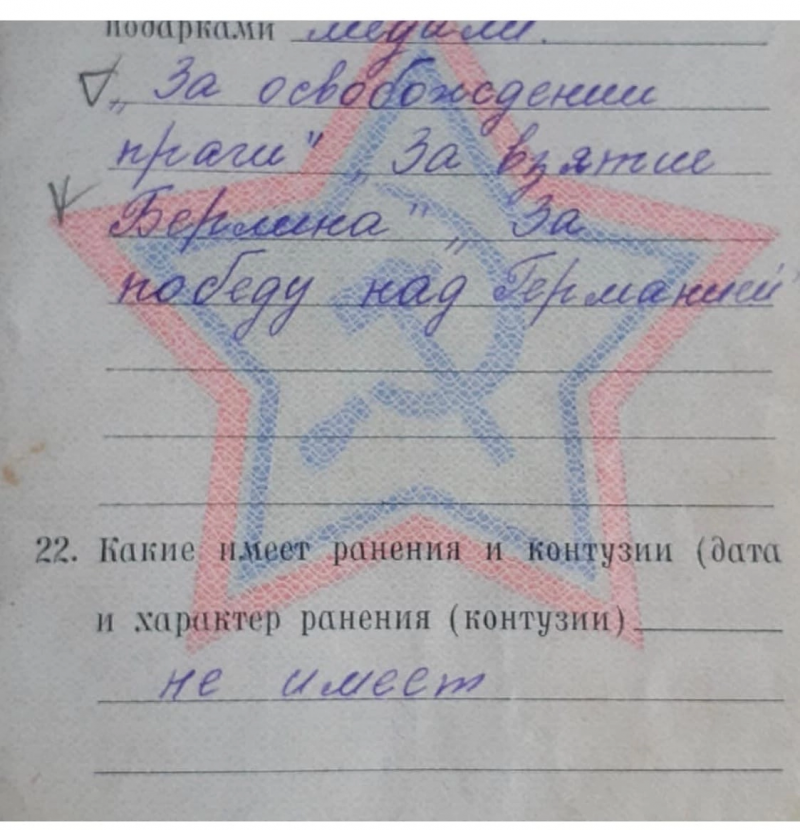 подарками медали.
„За освобождении
праги" „За взятие
Берлина" „За
победу над Германией"
22. Какие имеет ранения и контузии (дата
и характер ранения (контузии)
не имеет